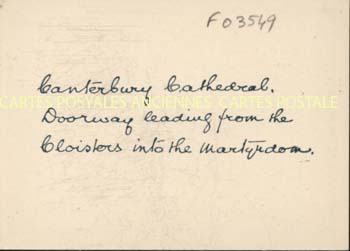 F03549
Canterbury Cathedral.
CARTES POSTALES ANCIENNES CARTES POSTALE
Doorway leading from the
Cloisters into the Martyrdom.